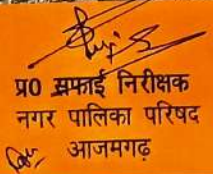 प्र0 सफाई निरीक्षक
नगर पालिका परिषद
आजमगढ़